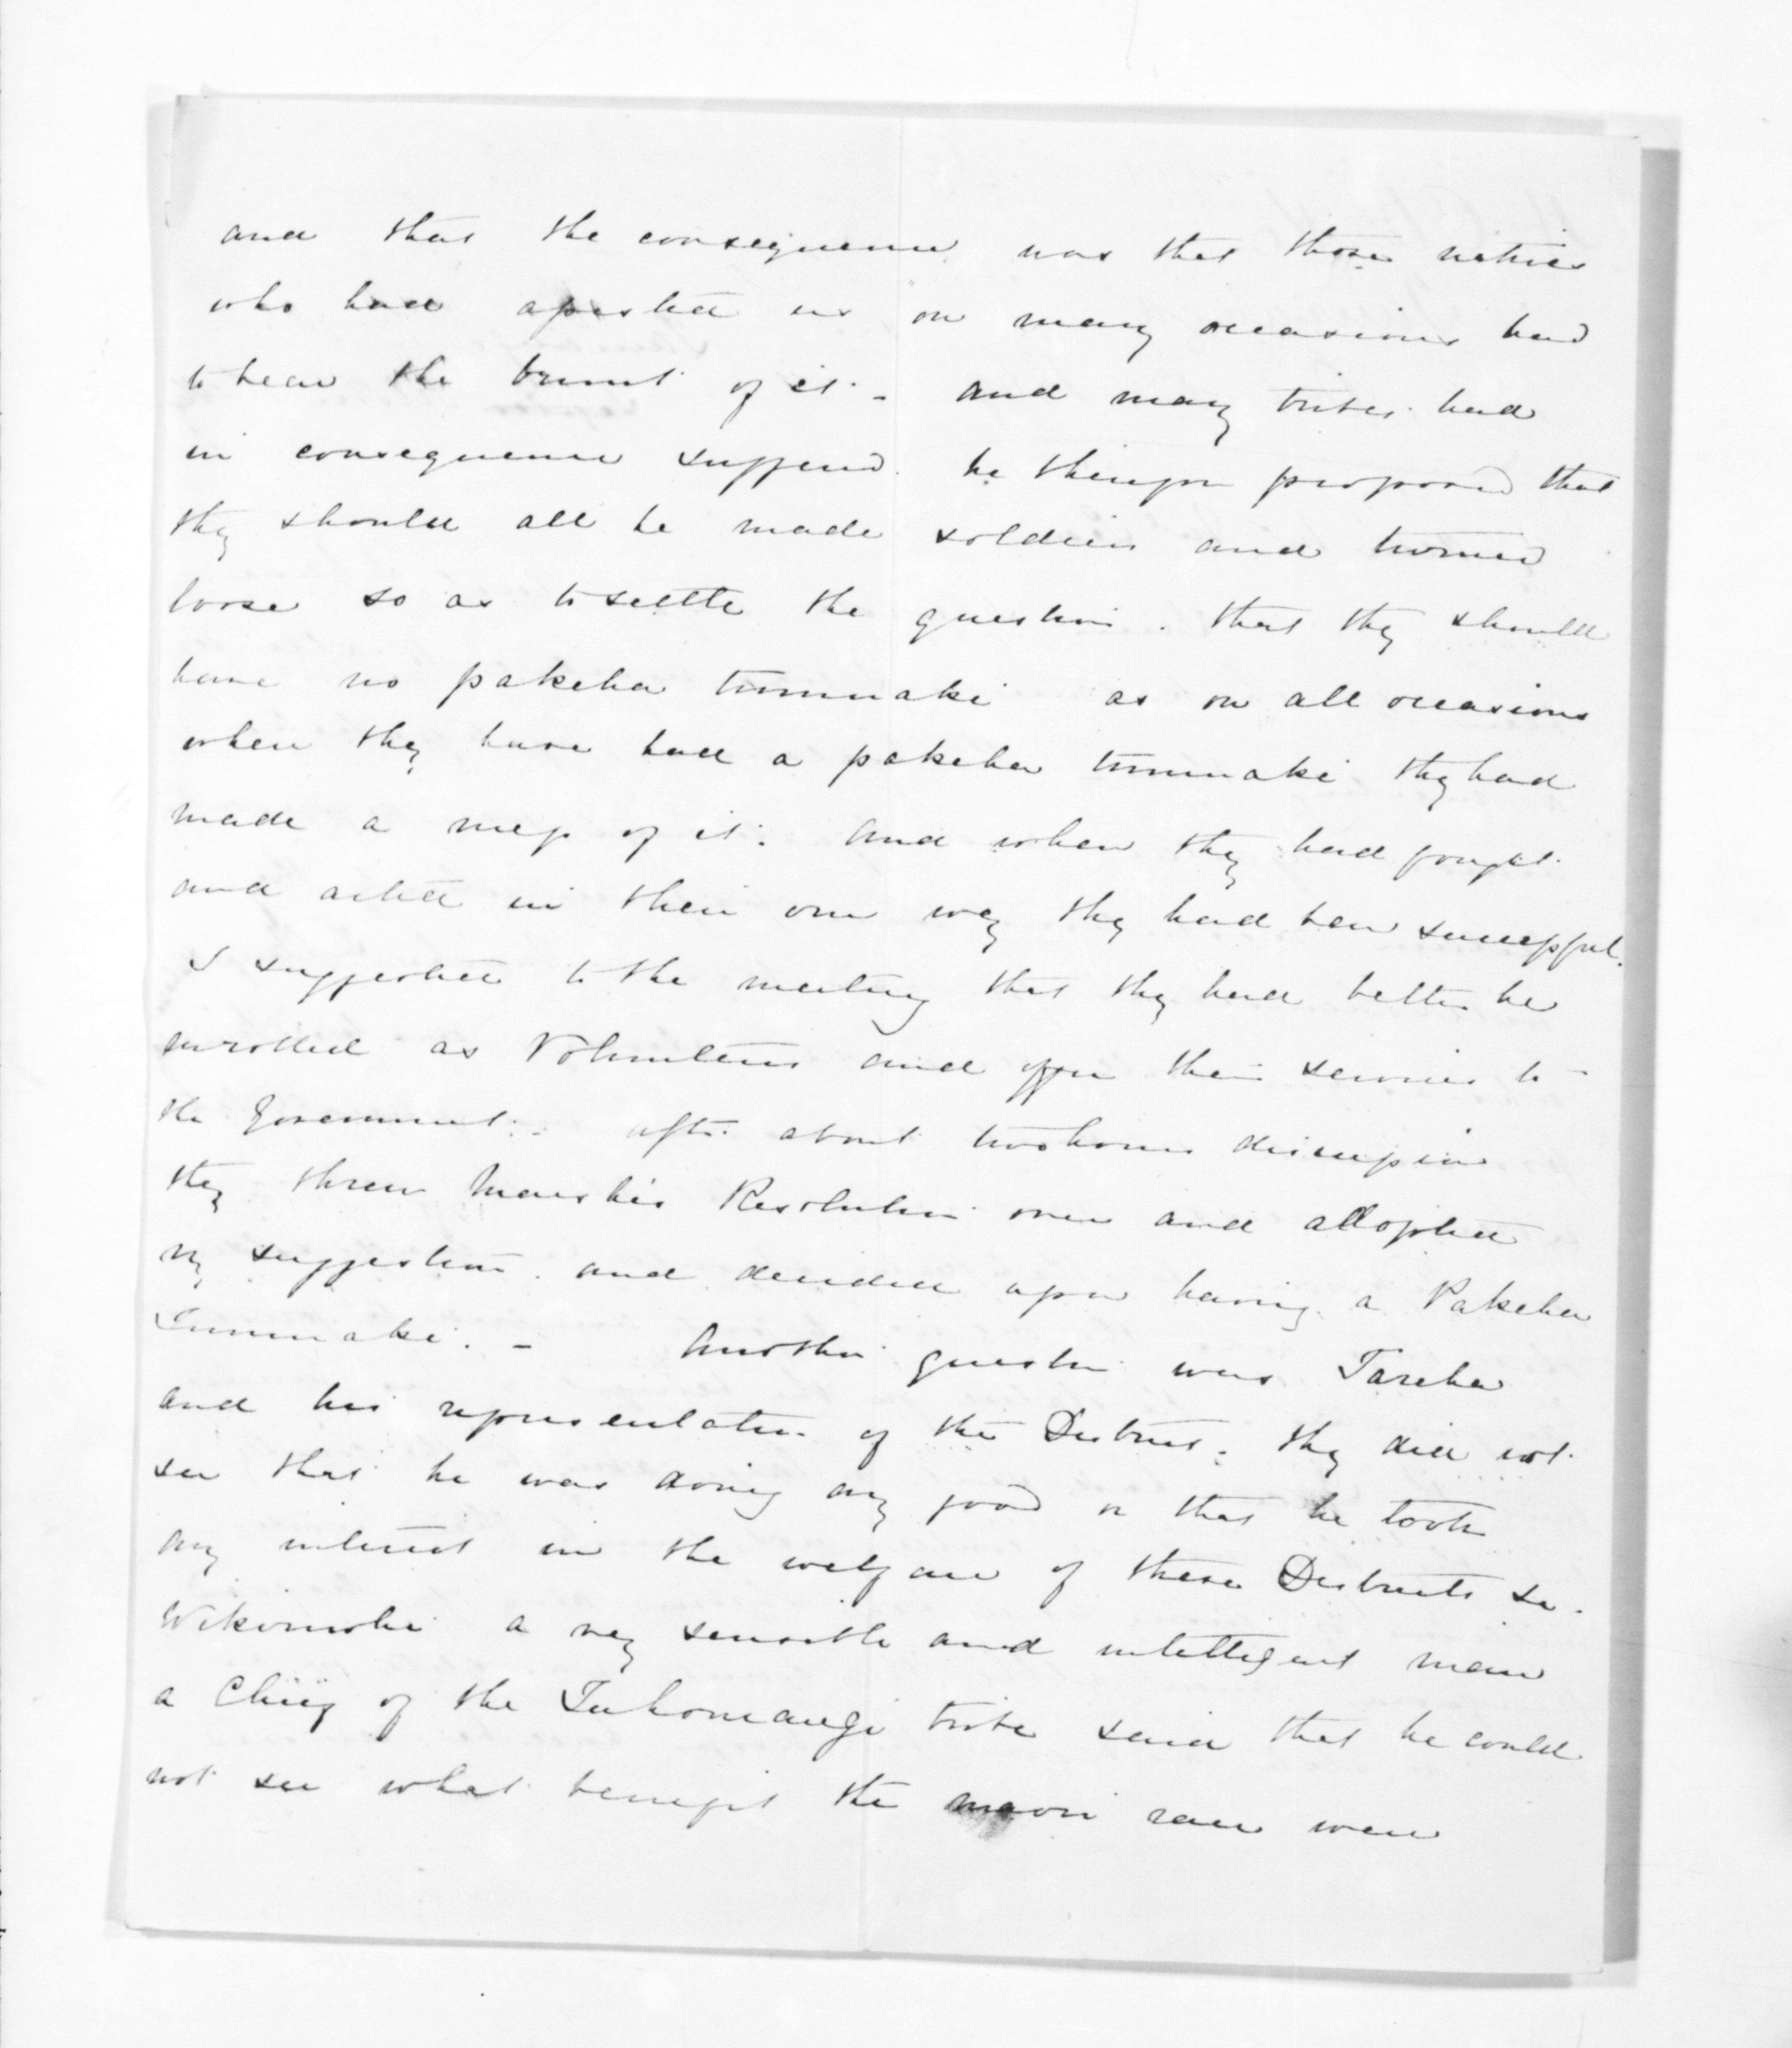 and that the consequence was that those natives
who had assisted us on many occasions had
to bear the brunt of it - and many tribes had
in consequence suffered. he therefore proposed that
they should all be made soldiers and turned
loose so as to settle the question. that they should
have no pakeha tumuaki as on all occasions
when they have had a pakeha tumuaki they had
made a mess of it. And when they had fought
and acted in their own way they had been successful.
I suggested to the meeting that they had better be
enrolled as Volunteers and offer their services to
the Government. - after about two hours discussion
they threw his Resolution over and adopted
my suggestion. and decided upon having a Pakeha
Tumuaki. - Another question was Tareha
and his representation of the District. they did not
see that he was doing any good or that he took
any interest in the welfare of these Districts &c.
a very sensible and intelligent man
a Chief of the Tuhourangi tribe said that he could
not see what benefit the maori race were